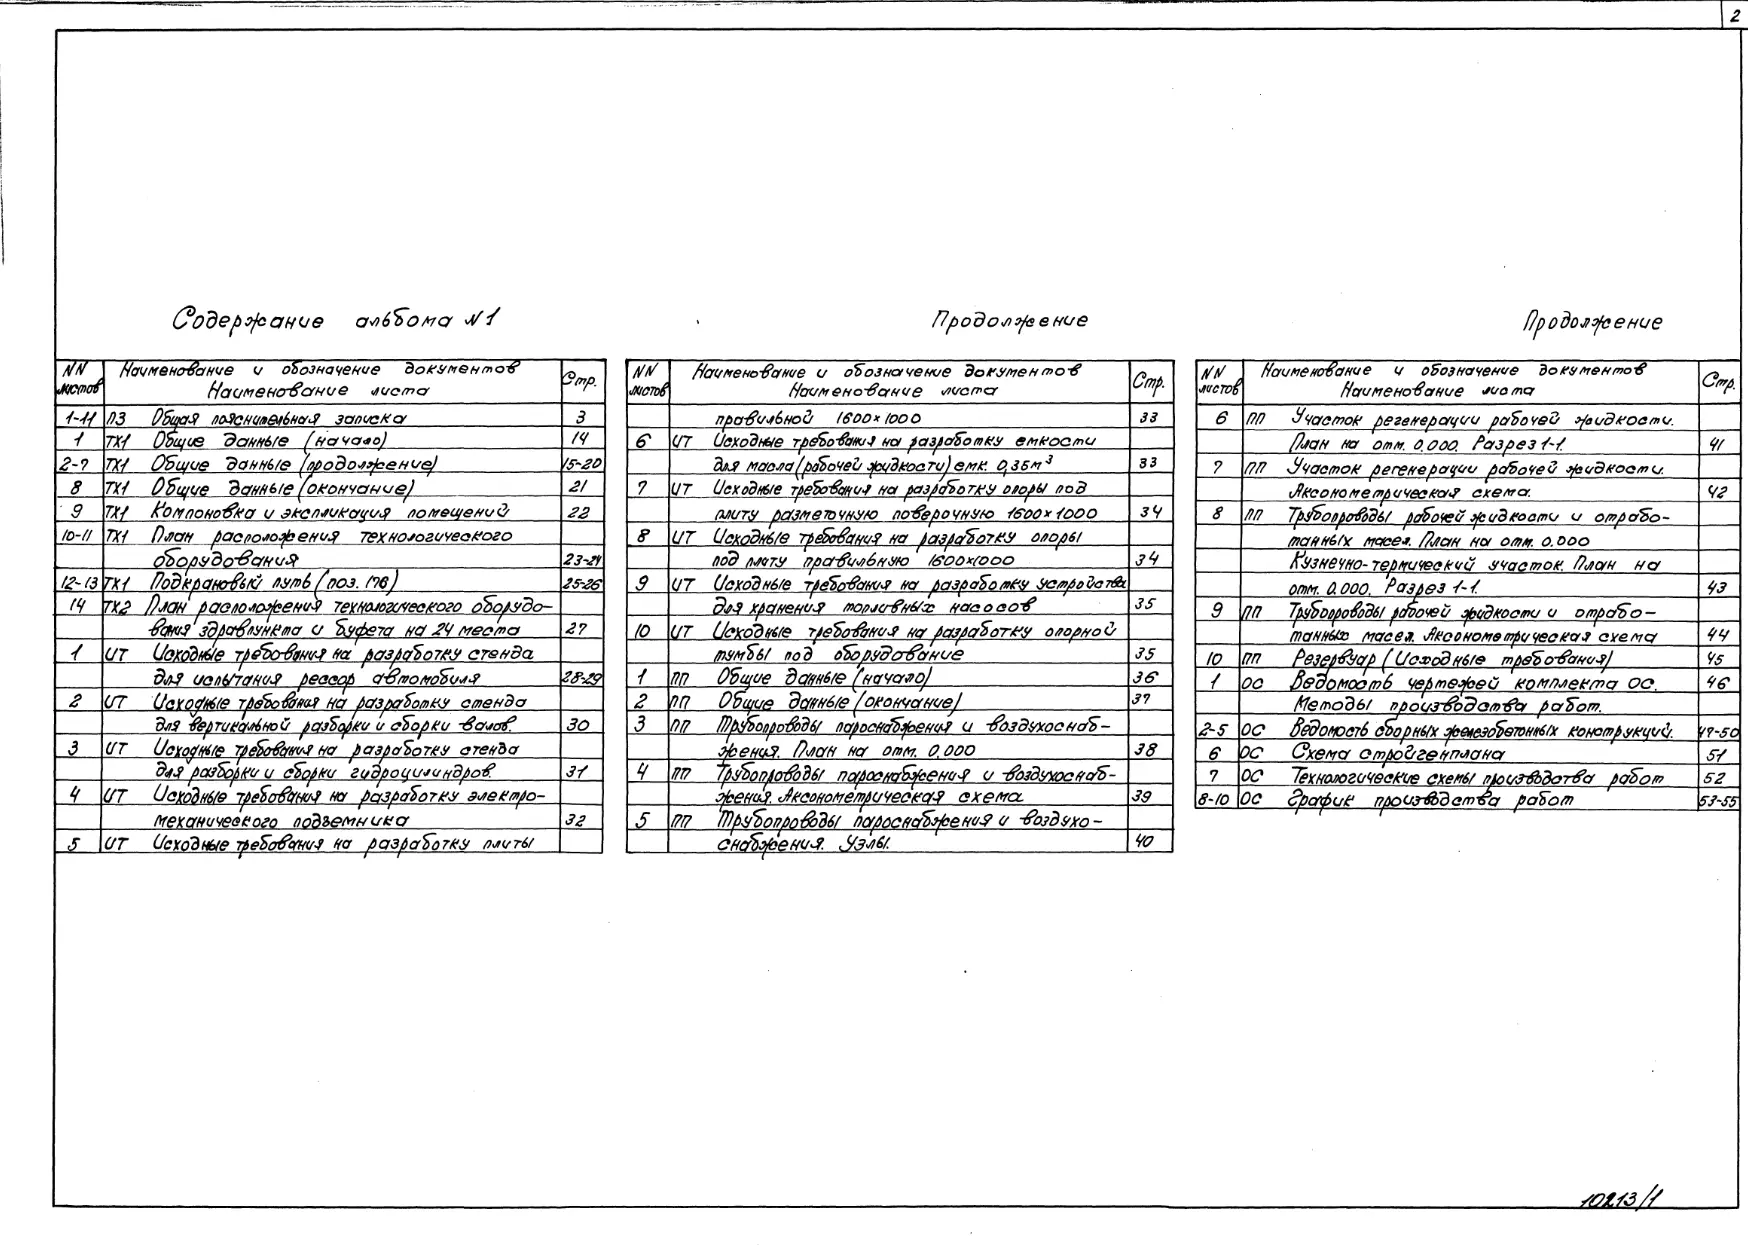 2
Содержание альбома №1
NN листов Наименование и обозначение документов Наименование листа Стр.
1-11 ПЗ Общая пояснительная записка 3
1 ТХ1 Общие данные (начало) 14
2-7 ТХ1 Общие данные (продолжение) 15-20
8 ТХ1 Общие данные (окончание) 21
9 ТХ1 Компоновка и экспликация помещений 22
10-11 ТХ1 План расположения технологического
оборудования 23-24
12-13 ТХ1 Подкрановый путь (поз. 176) 25-26
14 ТХ2 План расположения технологического оборудо-
вания здравпункта и буфета на 24 места 27
1 ИТ Исходные требования на разработку стенда
для испытания рессор автомобиля 28-29
2 ИТ Исходные требования на разработку стенда
для вертикальной разборки и сборки валов. 30
3 ИТ Исходные требования на разработку стенда
для разборки и сборки гидроцилиндров. 31
4 ИТ Исходные требования на разработку электро-
механического подъемника 32
5 ИТ Исходные требования на разработку плиты
Продолжение
NN листов Наименование и обозначение документов Наименование листа Стр.
правильной 1600×1000 33
6 ИТ Исходные требования на разработку емкости
для масла (рабочей жидкости) емк. 0,35м³ 33
7 ИТ Исходные требования на разработку опоры под
плиту разметочную поверочную 1600×1000 34
8 ИТ Исходные требования на разработку опоры
под плиту правильную 1600×1000 34
9 ИТ Исходные требования на разработку устройства
для хранения топливных насосов 35
10 ИТ Исходные требования на разработку опорной
тумбы под оборудование 35
1 ПП Общие данные (начало) 36
2 ПП Общие данные (окончание) 37
3 ПП Трубопроводы пароснабжения и воздухоснаб-
жения. План на отм. 0,000 38
4 ПП Трубопроводы пароснабжения и воздухоснаб-
жения. Аксонометрическая схема 39
5 ПП Трубопроводы пароснабжения и воздухо-
снабжения. Узлы. 40
Продолжение
NN листов Наименование и обозначение документов Наименование листа Стр.
6 ПП Участок регенерации рабочей жидкости.
План на отм. 0.000. Разрез 1-1. 41
7 ПП Участок регенерации рабочей жидкости.
Аксонометрическая схема. 42
8 ПП Трубопроводы рабочей жидкости и отрабо-
танных масел. План на отм. 0.000
Кузнечно-термический участок. План на
отм. 0.000. Разрез 1-1. 43
9 ПП Трубопроводы рабочей жидкости и отрабо-
танных масел. Аксонометрическая схема 44
10 ПП Резервуар (Исходные требования) 45
1 ОС Ведомость чертежей комплекта ОС. 46
Методы производства работ.
2-5 ОС Ведомость сборных железобетонных конструкций. 47-50
6 ОС Схема стройгенплана 51
7 ОС Технологические схемы производства работ 52
8-10 ОС График производства работ 53-55
10213/1